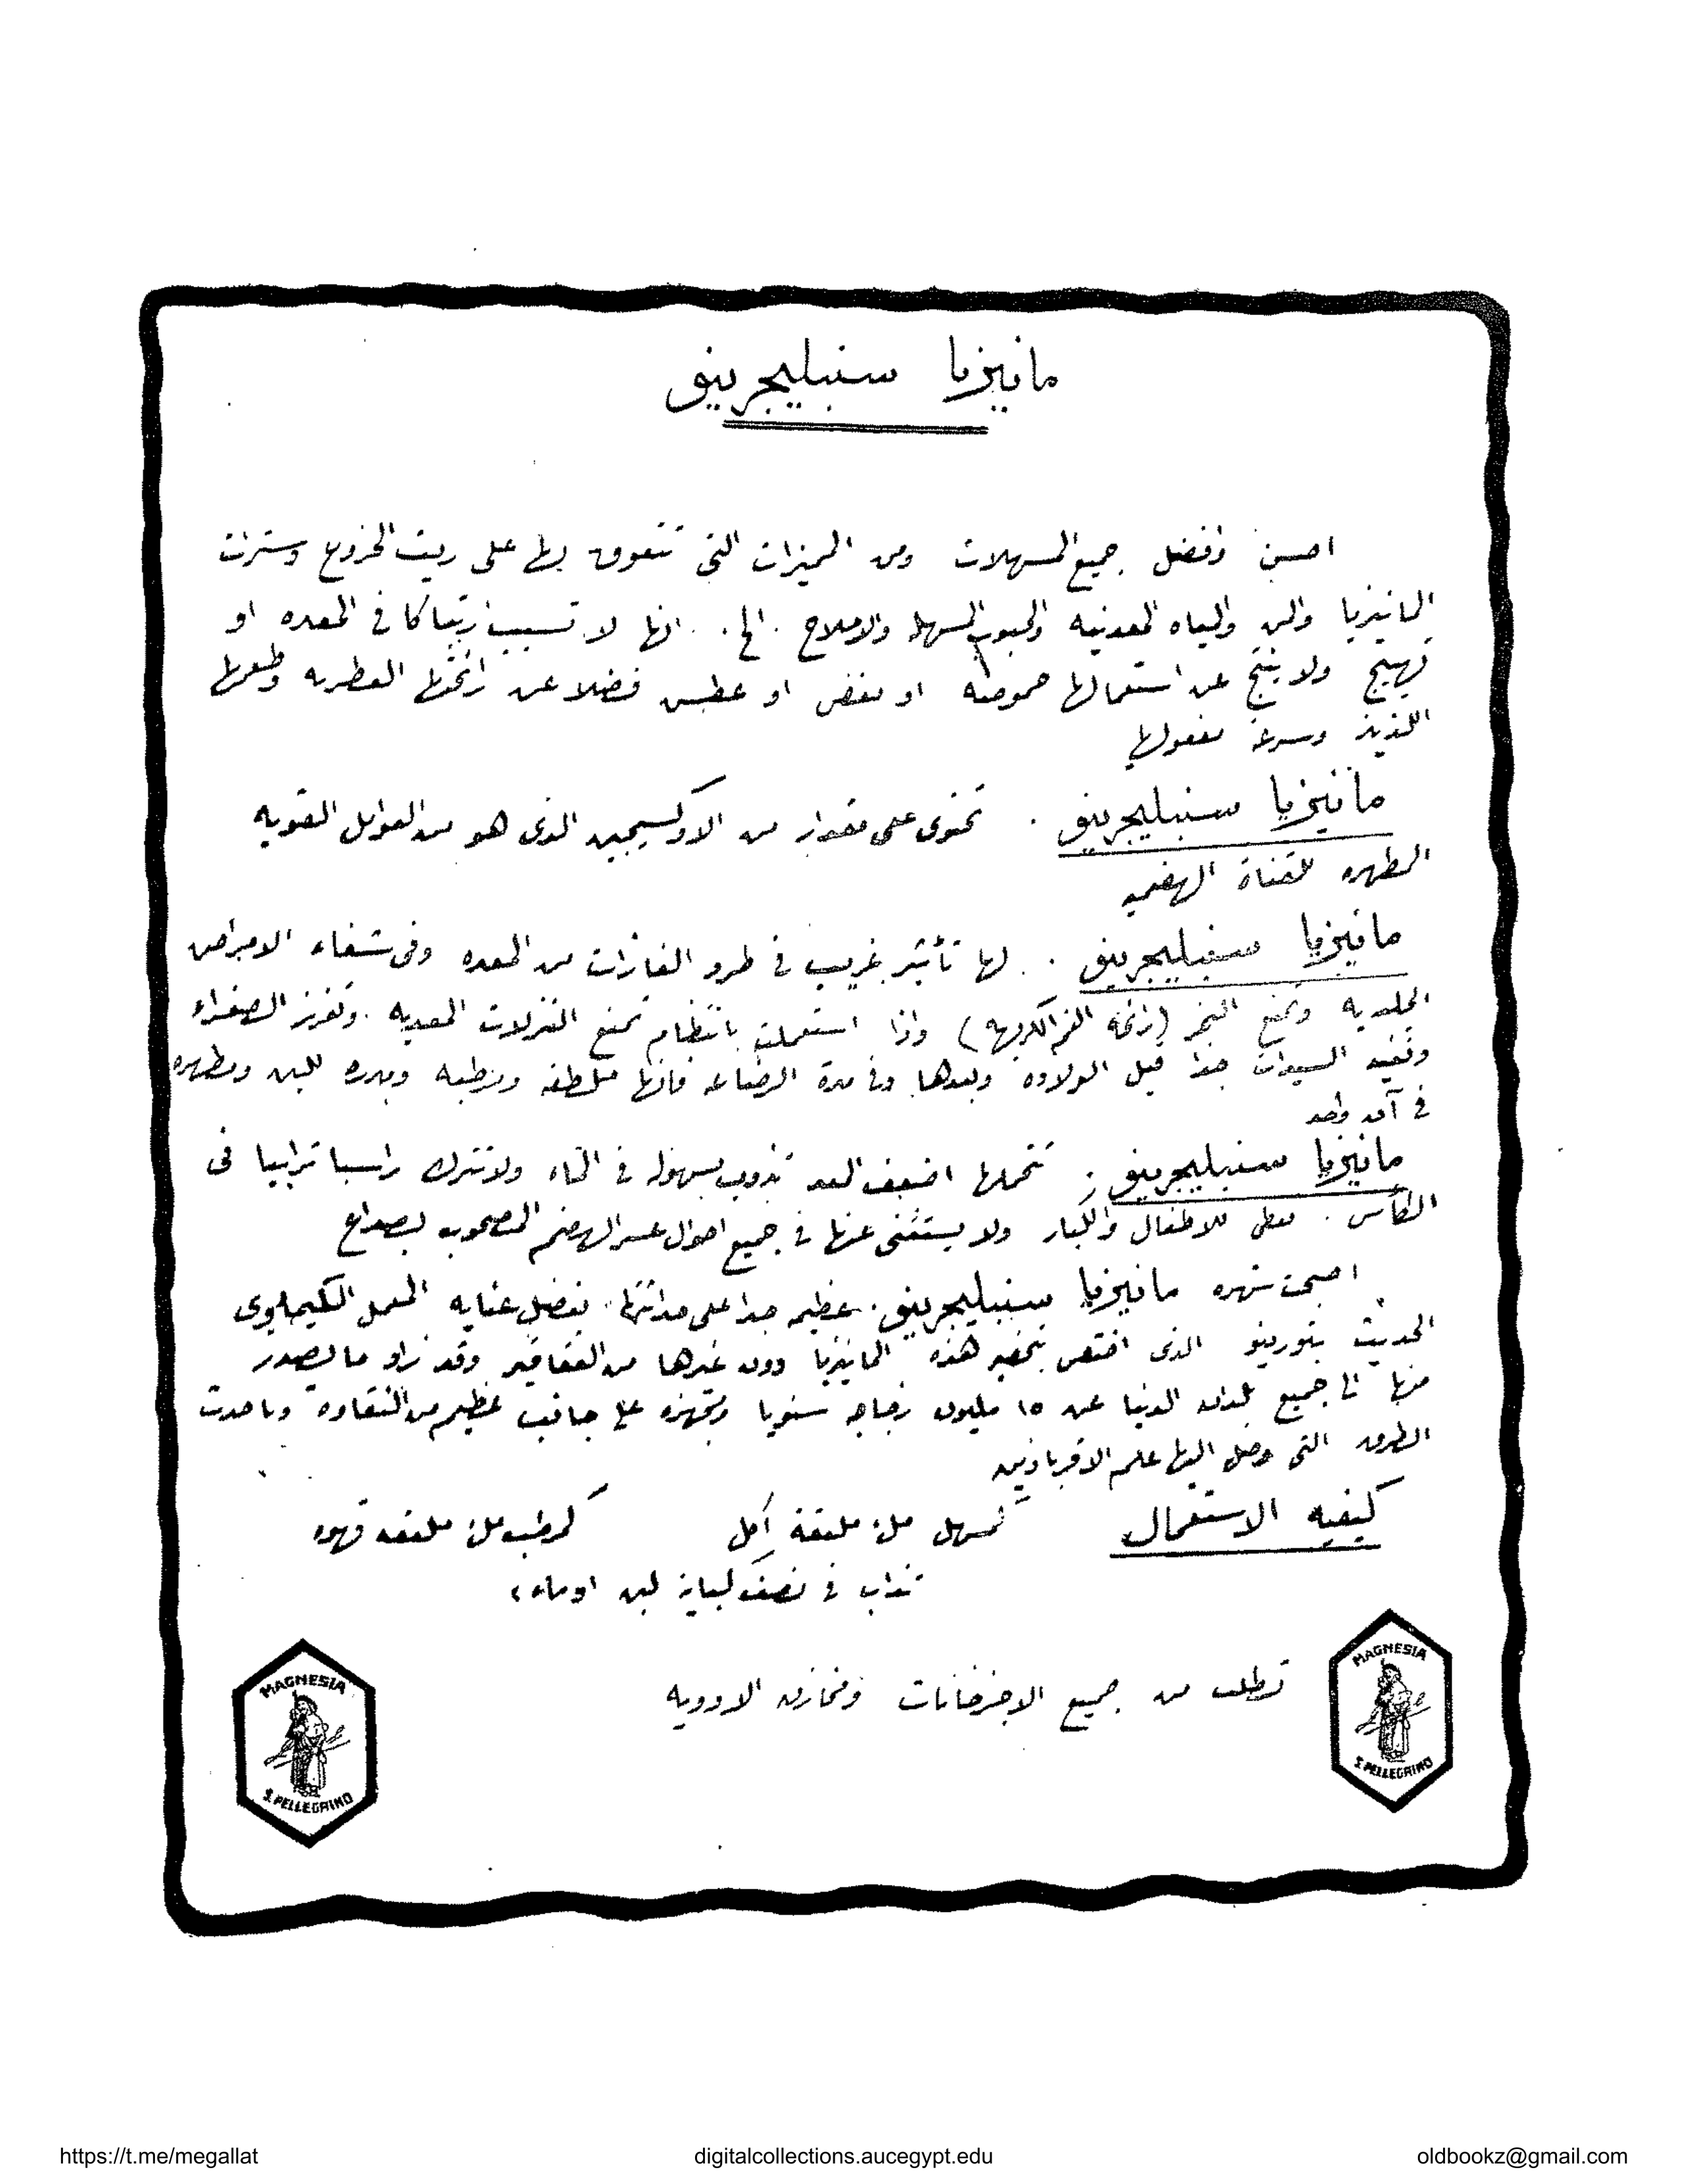 مانيزيا سنبليجرينو
احسن وافضل جميع المسهلات ومن المميزات التى تتفوق بها على زيت الخروع وسترات
المانيزيا والمن والمياه المعدنيه والحبوب المسهله والاملاح . الخ . انها لا تسبب ارتباكا فى المعده او
تهيج ولا ينتج عن استعمالها حموضه او مغص او عطس فضلا عن رائحتها العطريه وطعمها
اللذيذ وسرعة مفعولها
مانيزيا سنبليجرينو . تحتوى على مقدار من الاوكسيجين الذى هو من العوامل القويه
المطهره للقناة الهضميه
مانيزيا سنبليجرينو . لها تأثير غريب فى طرد الغازات من المعده وفى شفاء الامراض
الجلديه وتمنع البخر (رائحة الفم الكريهه) واذا استعملت بانتظام تمنع النزلات المعديه . وتفرز الصفراء
وتفيد السيدات جدا قبل الولاده وبعدها وفى مدة الرضاعه فانها ملطفه ومرطبه ومدره للبن ومطهره
فى آن واحد
مانيزيا سنبليجرينو : تتحملها اضعف المعد تذوب بسهوله فى الماء ولا تترك راسبا ترابيا فى
الكأس . تعطى للاطفال والكبار ولا يستغنى عنها فى جميع احوال عسر الهضم المصحوب بصداع
اصبحت شهره مانيزيا سنبليجرينو . عظيمه جدا على حداثتها . بفضل عنايه المعمل الكيماوى
الحديث بتورينو الذى اختص بتحضير هذه المانيزيا دون غيرها من العقاقير وقد زاد ما يصدر
منها الى جميع بلدان الدنيا عن ١٥ مليون زجاجه سنويا ومجهزه على جانب عظيم من النقاوة وباحدث
الطرق التى وصل اليها علم الاقرباذين
كيفيه الاستعمال كمسهل ملء ملعقة أكل كمرطب ملء ملعقه قهوه
تذاب فى نصف كباية لبن او ماء
تطلب من جميع الاجزخانات ومخازن الادويه
MAGNESIA
S. PELLEGRINO
MAGNESIA
S. PELLEGRINO
https://t.me/megallat
digitalcollections.aucegypt.edu
oldbookz@gmail.com